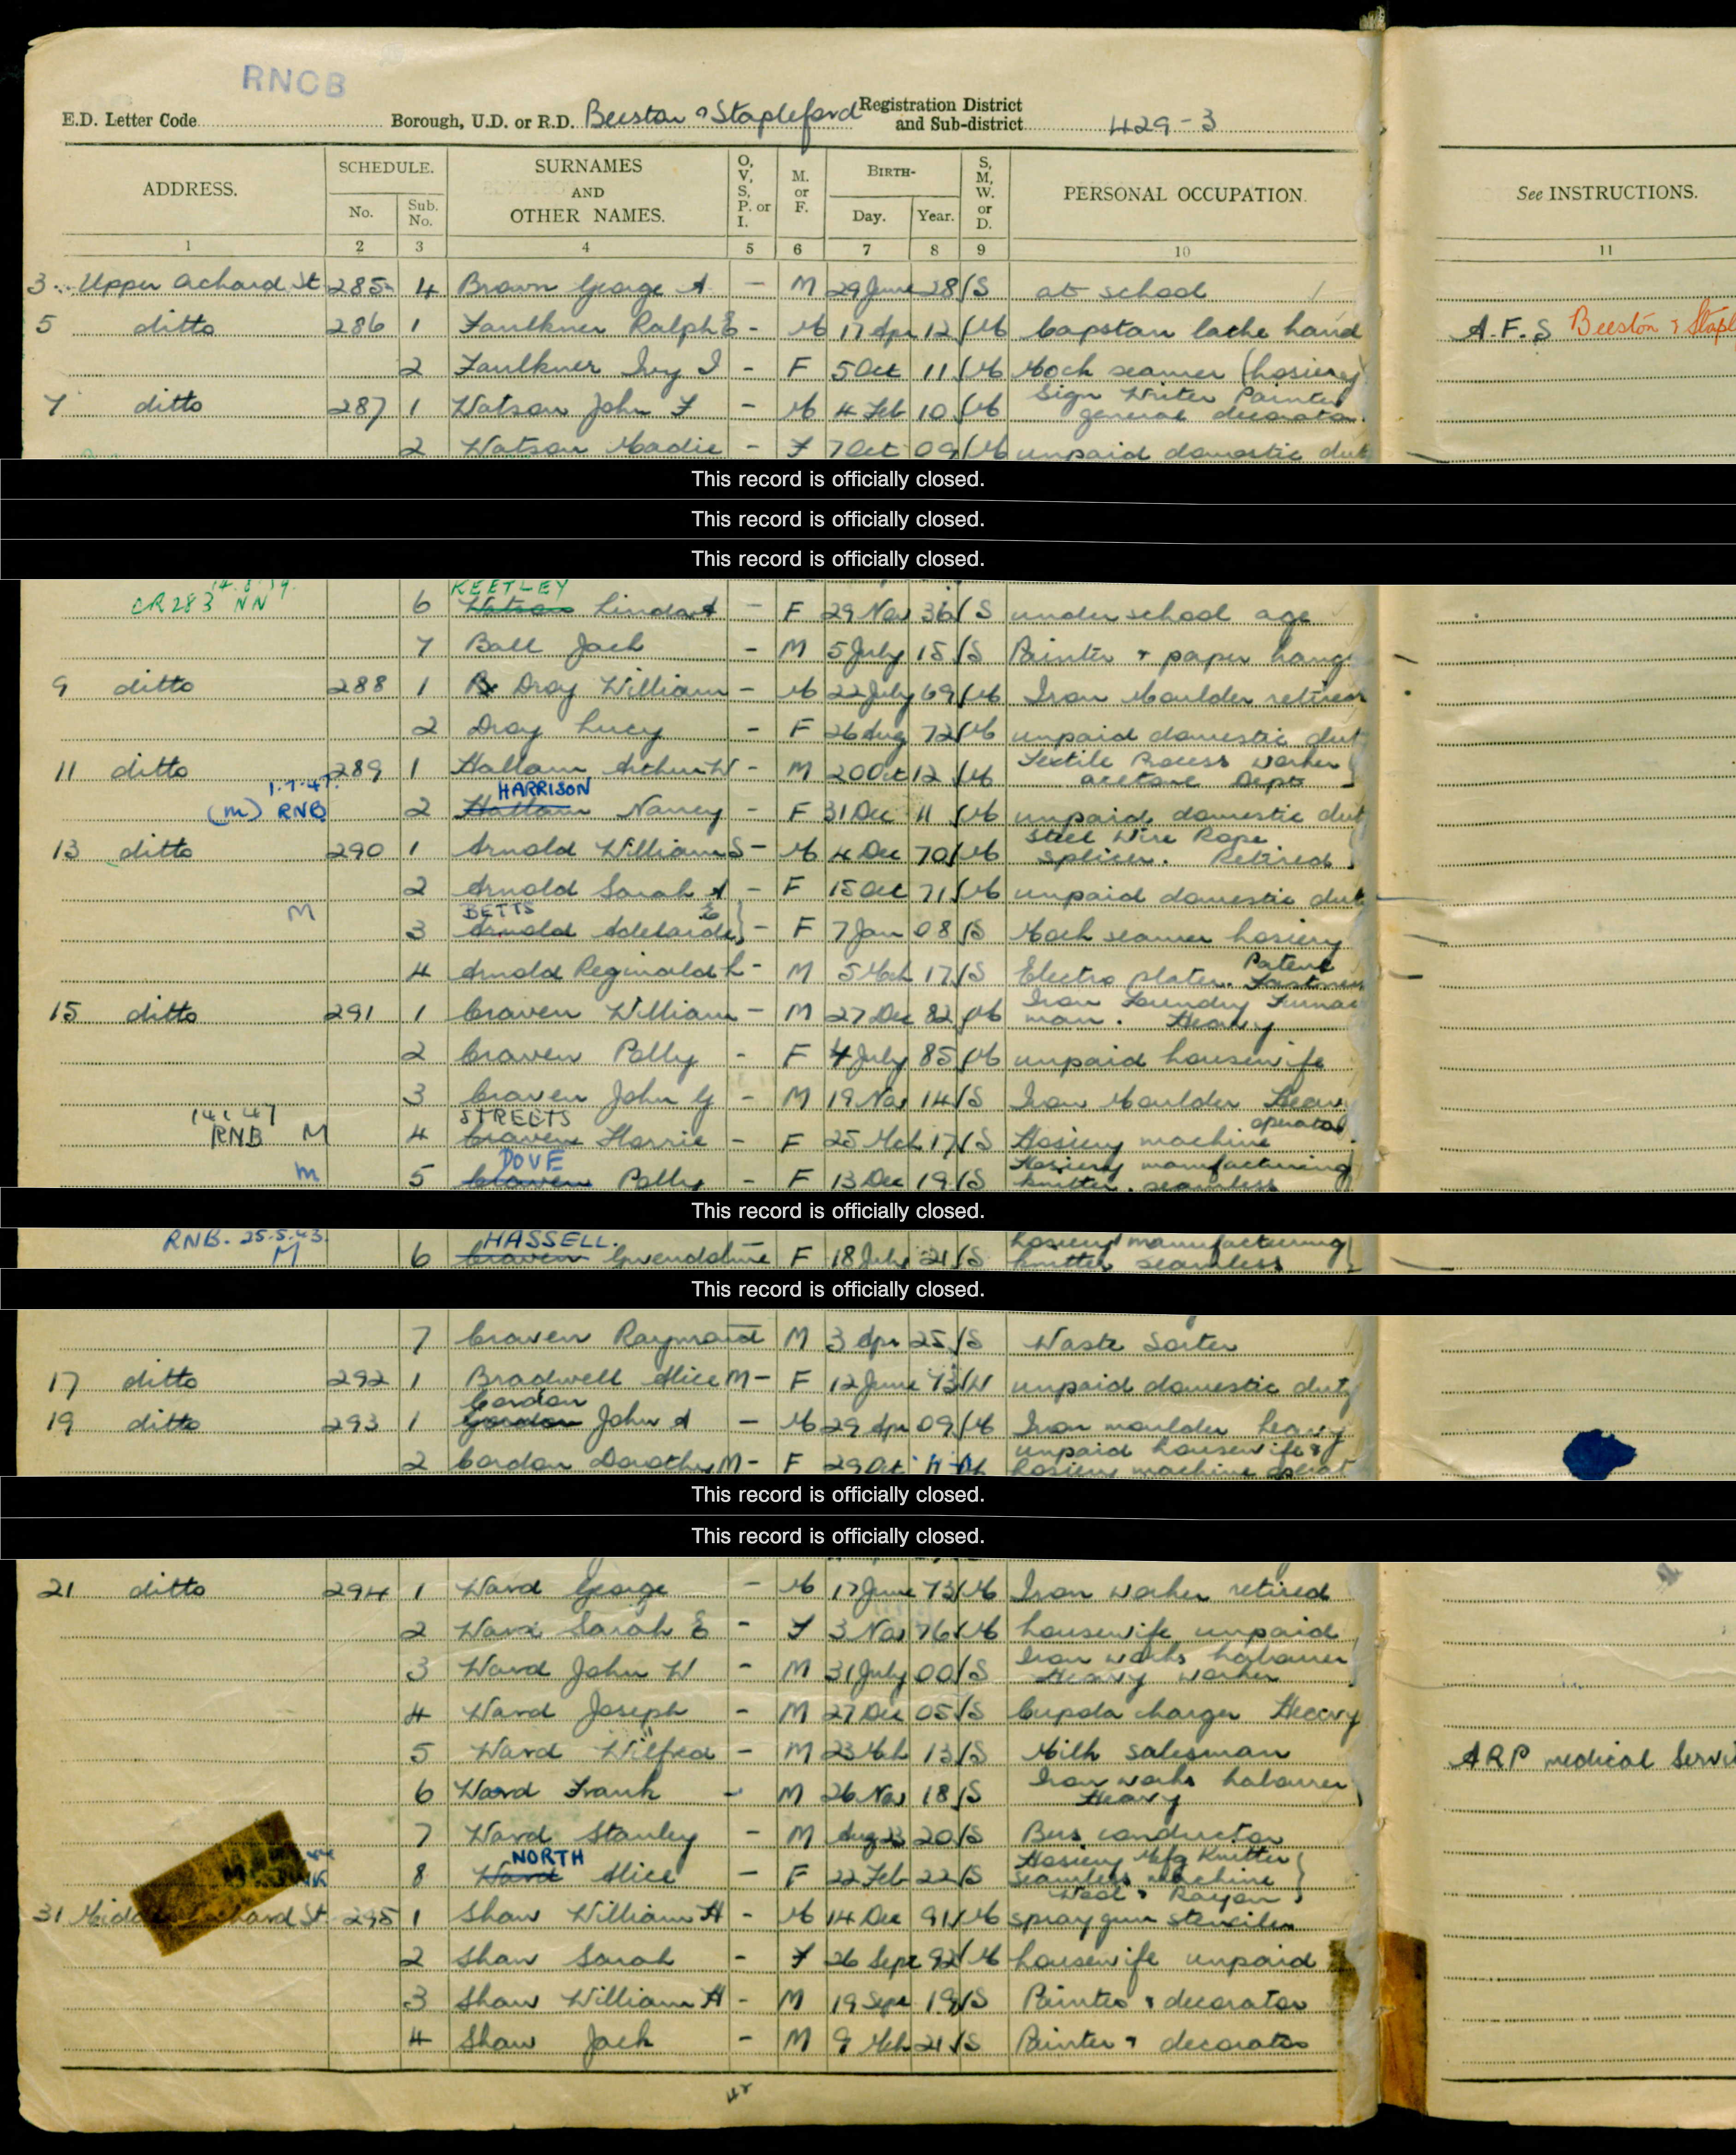 RNCB
E.D. Letter Code Borough, U.D. or R.D. Beeston & Stapleford Registration District and Sub-district 429-3
ADDRESS. SCHEDULE. No. Sub. No. SURNAMES AND OTHER NAMES. O, V, S, P. or I. M. or F. BIRTH- Day. Year. S, M, W. or D. PERSONAL OCCUPATION. See INSTRUCTIONS.
1 2 3 4 5 6 7 8 9 10 11
3 Upper Orchard St 285 4 Brown George A - M 29 June 28 S at school
5 ditto 286 1 Faulkner Ralph E - M 17 Apr 12 M Capstan lathe hand A.F.S Beeston & Stapl
2 Faulkner Ivy I - F 5 Oct 11 M Mock seamer (hosiery)
7 ditto 287 1 Watson John F - M 4 Feb 10 M Sign Writer Painter general decorator
2 Watson Madie - F 7 Oct 09 M unpaid domestic dut
This record is officially closed.
This record is officially closed.
This record is officially closed.
CR283 NN KEETLEY
6 Watson Linda A - F 29 Nov 36 S under school age
7 Ball Jack - M 5 July 15 S Painter & paper hang
9 ditto 288 1 Dray William - M 22 July 69 M Iron Moulder retired
2 Dray Lucy - F 26 Aug 72 M unpaid domestic dut
11 ditto 289 1 Hallam Arthur W - M 20 Oct 12 M Textile Process worker acetone Dept
1.7.47 HARRISON
(m) RNB 2 Hallam Nancy - F 31 Dec 11 M unpaid domestic dut
13 ditto 290 1 Arnold William S - M 4 Dec 70 M Steel Wire Rope Splicer. Retired
2 Arnold Sarah A - F 15 Oct 71 M unpaid domestic dut
M BETTS
3 Arnold Adelaide E - F 7 Jan 08 S Mock seamer hosiery
4 Arnold Reginald L - M 5 Mch 17 S Electro plater. Patent Fastener
15 ditto 291 1 Craven William - M 27 Dec 82 M Iron Foundry Furnace man. Heavy
2 Craven Polly - F 4 July 85 M unpaid housewife
3 Craven John G - M 19 Nov 14 S Iron Moulder Heavy
STREETS
RNB M 4 Craven Florrie - F 25 Mch 17 S Hosiery machine operator
DOVE
m 5 Craven Polly - F 13 Dec 19 S Hosiery manufacturing knitter. seamless
This record is officially closed.
RNB. 25.5.43 HASSELL.
M 6 Craven Gwendoline F 18 July 21 S hosiery manufacturing knitter seamless
This record is officially closed.
7 Craven Raymond M 3 Apr 25 S Waste Sorter
17 ditto 292 1 Bradwell Alice M - F 12 June 73 W unpaid domestic duty
Cordon
19 ditto 293 1 Gordon John A - M 29 Apr 09 M Iron moulder heavy
2 Cordon Dorothy M - F 29 Oct 11 M unpaid housewife & hosiery machine operat
This record is officially closed.
This record is officially closed.
21 ditto 294 1 Ward George - M 17 June 73 M Iron worker retired
2 Ward Sarah E - F 3 Nov 76 M housewife unpaid
3 Ward John W - M 31 July 00 S Iron works labourer Heavy worker
4 Ward Joseph - M 27 Dec 05 S Cupola charger Heavy
5 Ward Wilfred - M 23 Mch 13 S Milk salesman ARP medical Servi
6 Ward Frank - M 26 Nov 18 S Iron works labourer Heavy
7 Ward Stanley - M Aug 23 20 S Bus conductor
NORTH
8 Ward Alice - F 22 Feb 22 S Hosiery Mfg Knitter Seamless Machine Wool & Rayon
31 St 295 1 Shaw William H - M 14 Dec 91 M spray gun stenciler
2 Shaw Sarah - F 26 Sept 92 M housewife unpaid
3 Shaw William H - M 19 Sept 19 S Painter & decorator
4 Shaw Jack - M 9 Mch 21 S Painter & decorator